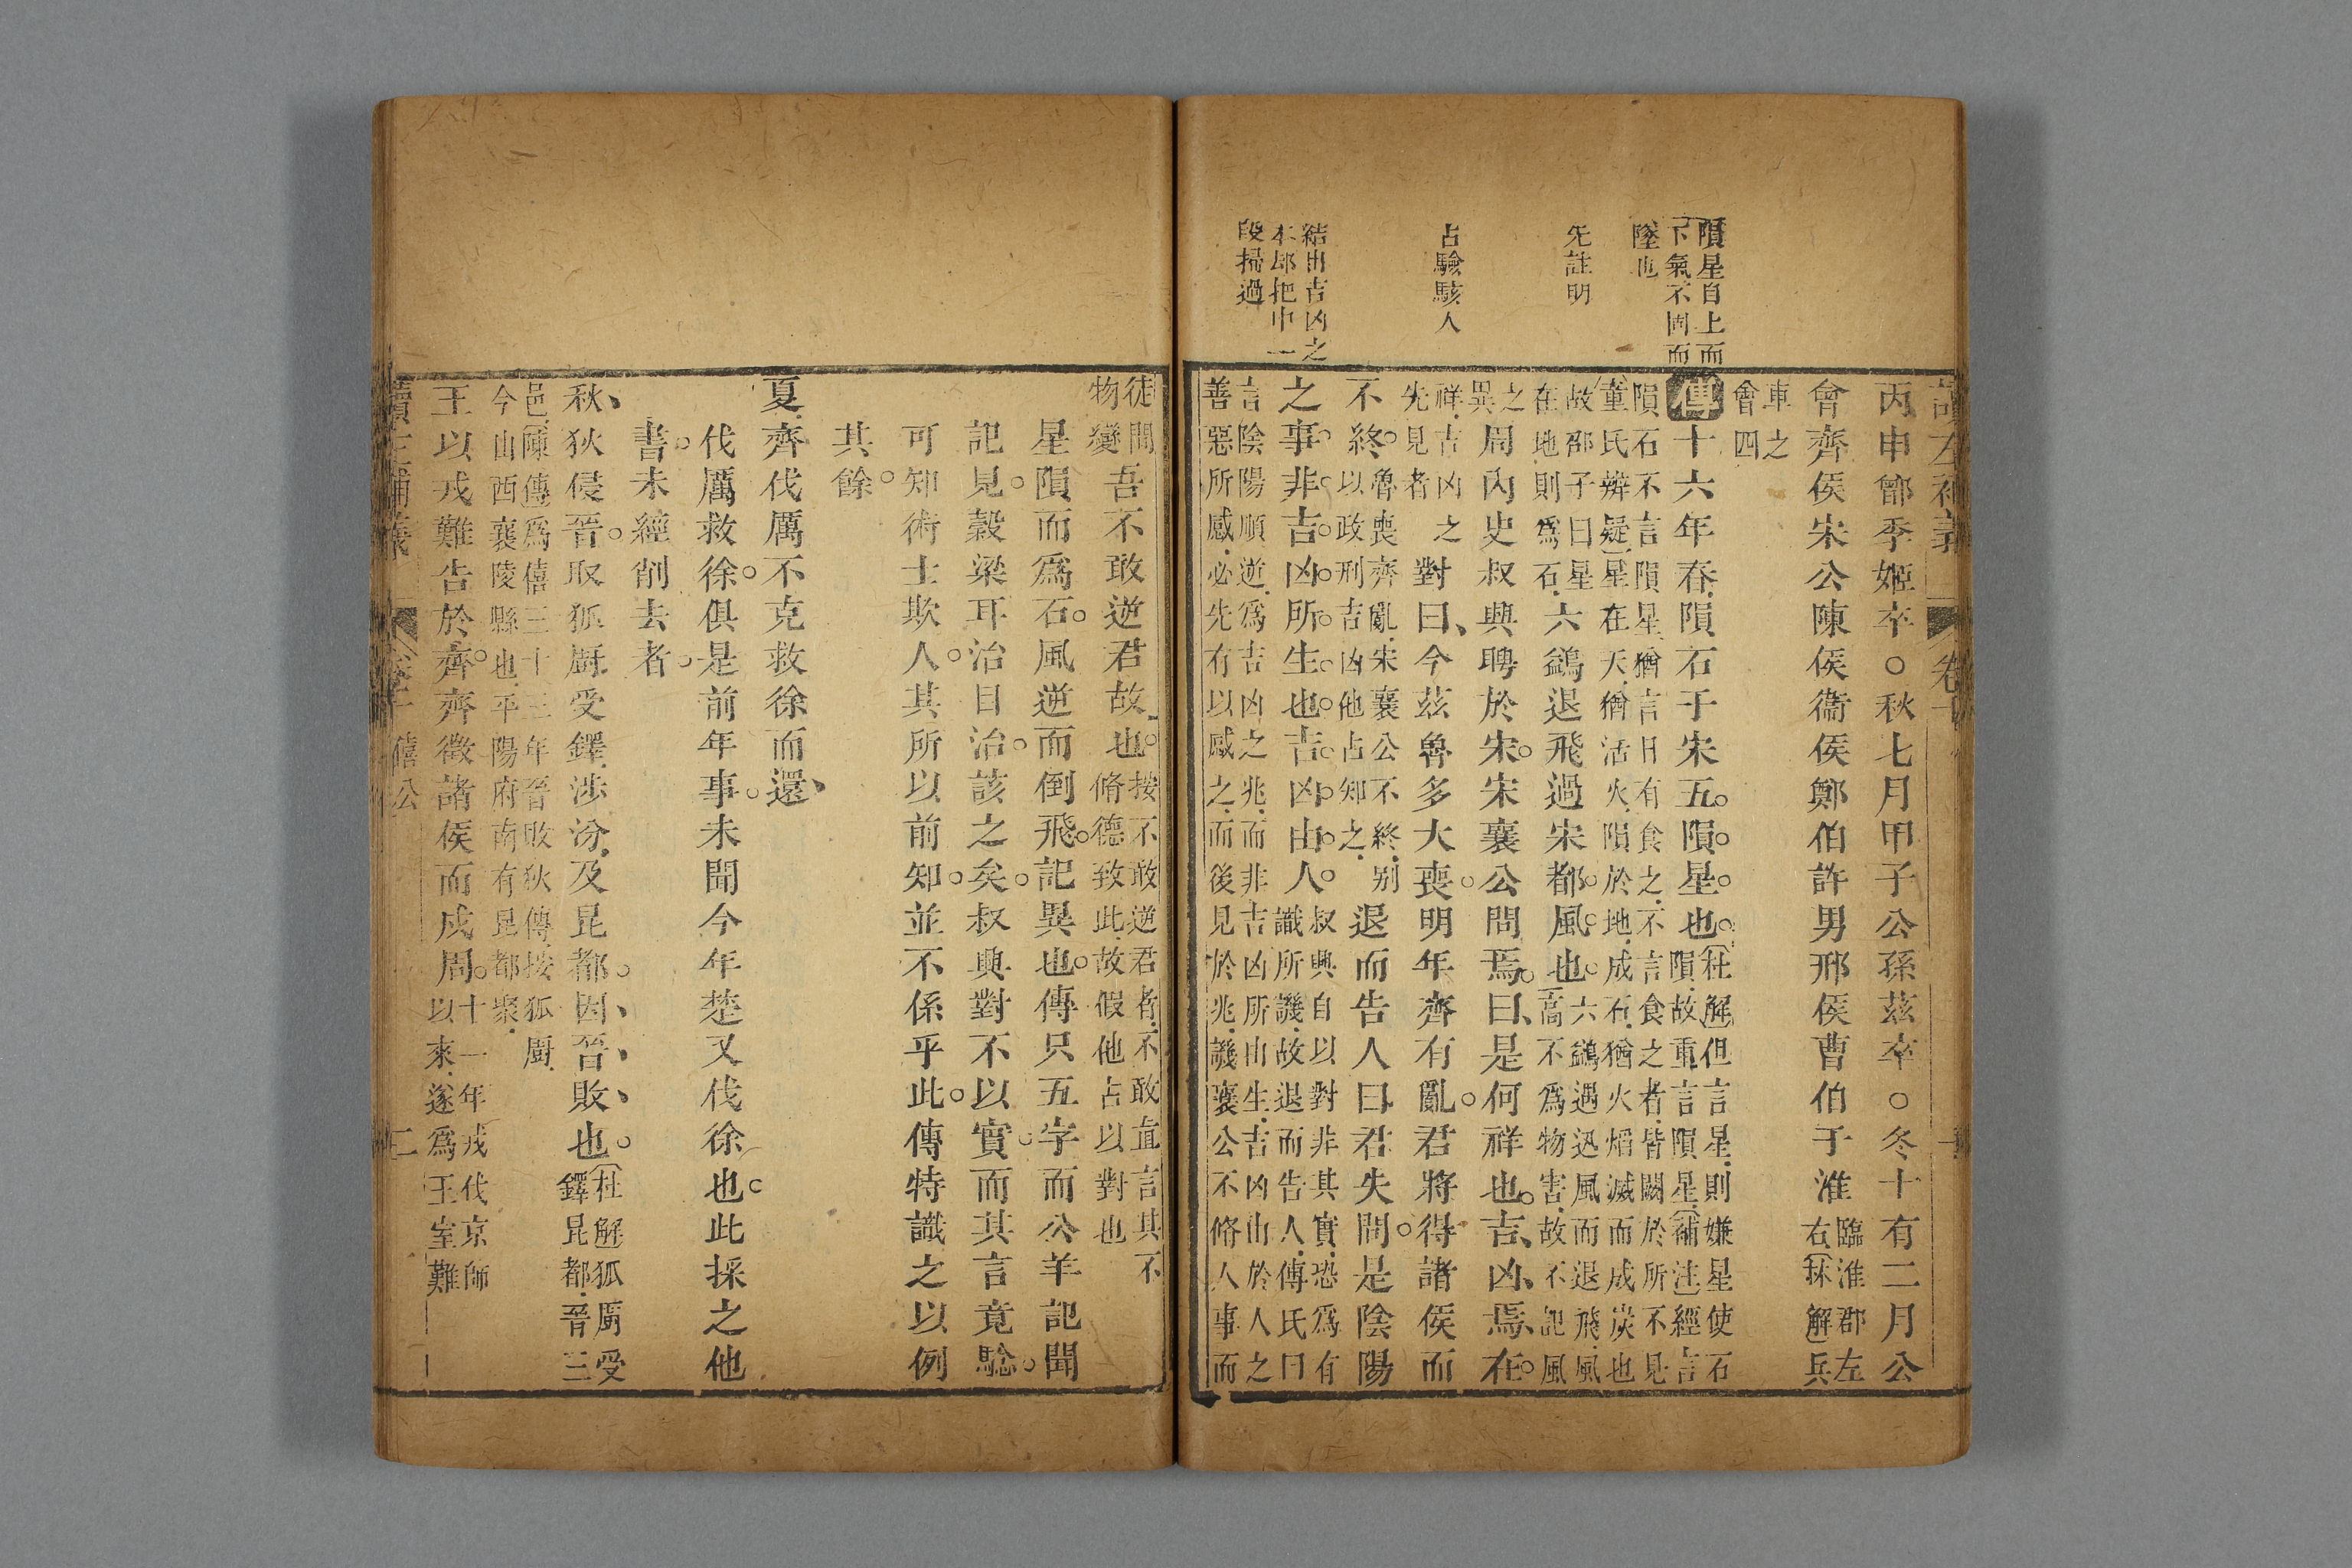 隕星自上而
下氣不固而
墜也
先註明
占驗駭人
結出吉凶之
本郤把中一
段掃過
讀左補義 卷十
丙申鄫季姬卒○秋七月甲子公孫茲卒○冬十有二月公
會齊侯宋公陳侯衞侯鄭伯許男邢侯曹伯于淮
臨淮郡左
右林解兵
車之
會四
傳十六年春隕石于宋五隕星也
杜解但言星則嫌星使石
隕故重言隕星補注經言
隕石不言隕星猶言日有食之不言食之者皆闕於所不見
童氏辨疑星在天猶活火隕於地成石猶火熖滅而成炭也
故邵子曰星
在地則爲石
六鷁退飛過宋都風也
六鷁遇迅風而退飛風
高不爲物害故不記風
之
異
周內史叔興聘於宋宋襄公問焉曰是何祥也吉凶焉在
祥吉凶之
先見者
對曰今茲魯多大喪明年齊有亂君將得諸侯而
不終
魯喪齊亂宋襄公不終别
以政刑吉凶他占知之
退而告人曰君失問是陰陽
之事非吉凶所生也吉凶由人
叔興自以對非其實恐爲有
識所譏故退而告人傳氏曰
言陰陽順逆爲吉凶之兆而非吉凶所由生吉凶由於人之
善惡所感必先有以感之而後見於兆譏襄公不脩人事而
徒問
物變
吾不敢逆君故也
按不敢逆君者不敢直言其不
脩德致此故假他占以對也
星隕而爲石風逆而倒飛記異也傳只五字而公羊記聞
記見穀梁耳治目治該之矣叔興對不以實而其言竟驗
可知術士欺人其所以前知並不係乎此傳特識之以例
其餘
夏齊伐厲不克救徐而還
伐厲救徐俱是前年事未聞今年楚又伐徐也此採之他
書未經削去者
秋狄侵晉取狐廚受鐸涉汾及昆都因晉敗也
杜解狐廚受
鐸昆都晉三
邑陳傳爲僖三十三年晉敗狄傳按狐廚
今山西襄陵縣也平陽府南有昆都聚
王以戎難告於齊齊徵諸侯而戍周
十一年戎伐京師
以來遂爲王室難
讀左補義 卷十 僖公 二